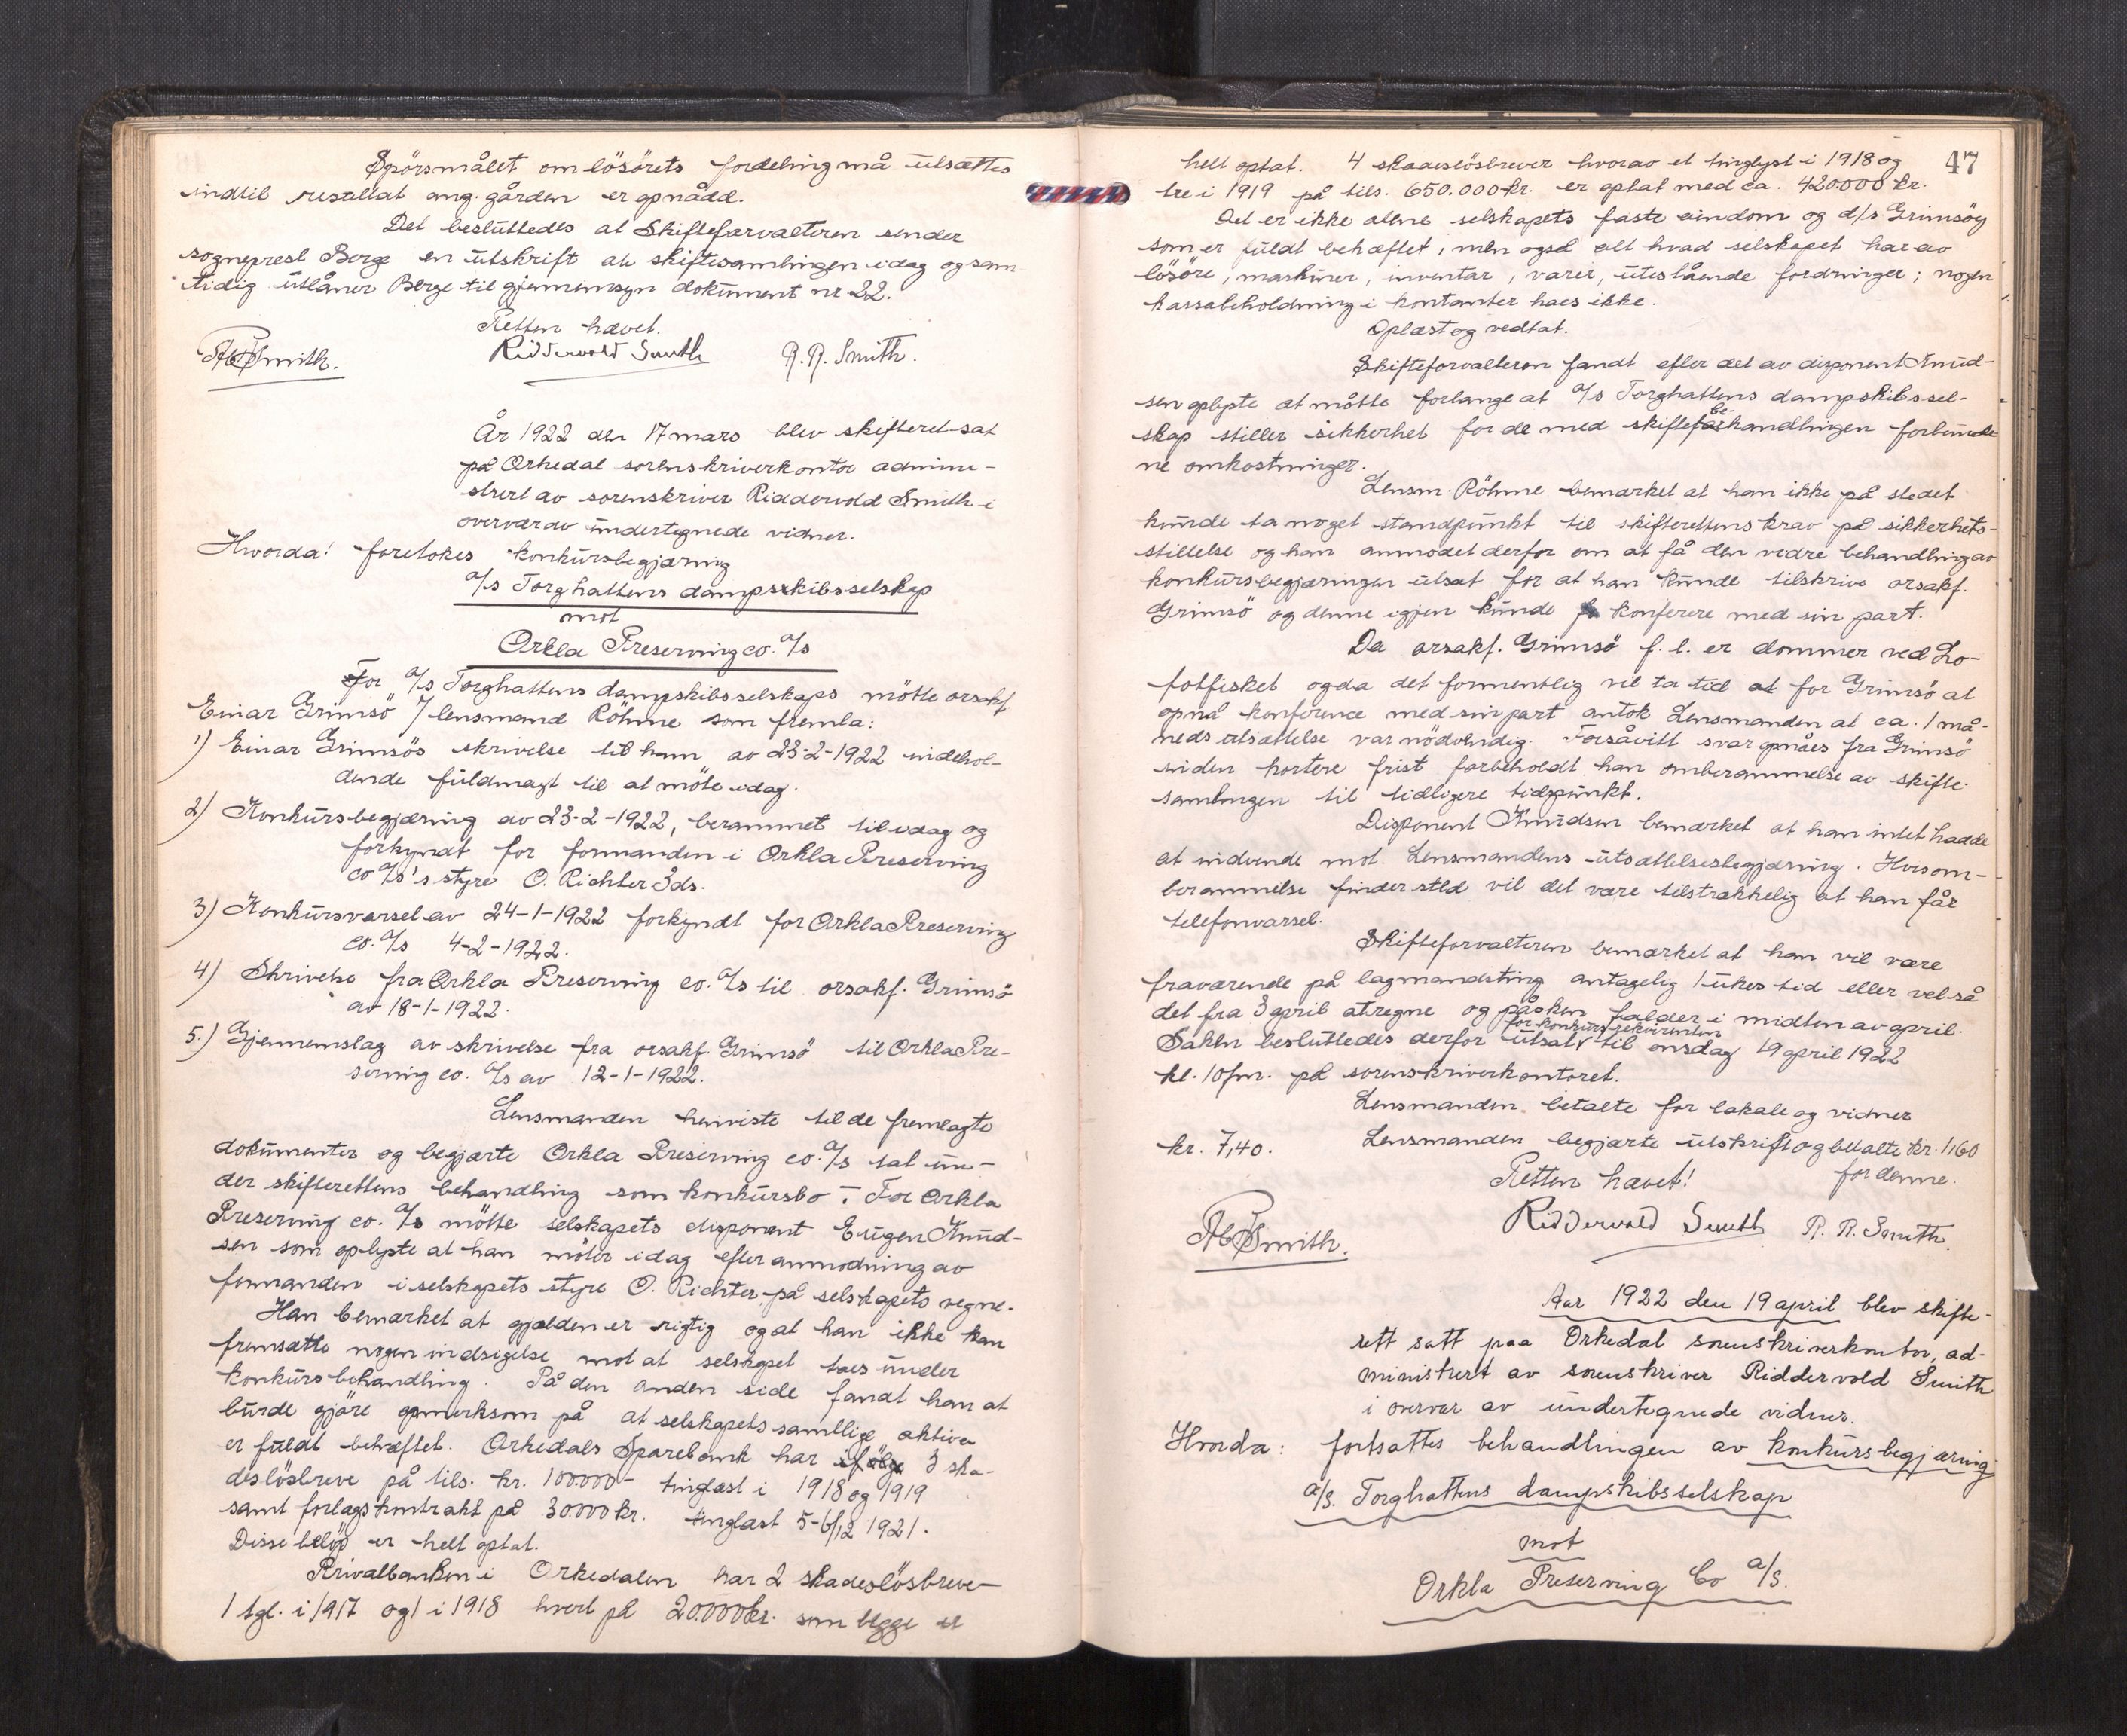 Spörsmålet om lösörets fordeling må utsættes
indtil resultat ang. gården er opnådd.
Det besluttedes at Skifteforvalteren sender
sogneprest Berge en utskrift av skiftesamlingen idag og sam-
tidig utlåner Berge til gjennemsyn dokument nr 22.
Retten hævet.
Smith. Riddervold Smith R. R. Smith.
År 1922 den 17 mars blev skifteret sat
på Orkedal sorenskriverkontor admini-
strert av sorenskriver Riddervold Smith i
overvær av undertegnede vidner.
Hvorda! foretokes konkursbegjæring
a/s Torghattens dampsskibsselskap
mot
Orkla Preserving co. a/s
For a/s Torghattens dampskibsselskaps mötte orsakf
Einar Grimsö v/ lensmand Röhme som fremla:
1) Einar Grimsös skrivelse til ham av 23-2-1922 indehol-
dende fuldmagt til at möte idag.
2) Konkursbegjæring av 23-2-1922, berammet til idag og
forkyndt for formanden i Orkla Preserving
co a/s's styre O. Richter 3ds.
3) Konkursvarsel av 24-1-1922 forkyndt for Orkla Preserving
co. a/s 4-2-1922.
4) Skrivelse fra Orkla Preserving co. a/s til orsakf. Grimsö
av 18-1-1922.
5.) Gjennemslag av skrivelse fra orsakf. Grimsö til Orkla Pre-
serving co. a/s av 12-1-1922.
Lensmanden henviste til de fremlagte
dokumenter og begjærte Orkla Preserving co. a/s tat un-
der skifterettens behandling som konkursbo. For Orkla
Preserving co. a/s mötte selskapets disponent Eugen Knud-
sen som oplyste at han möter idag efter anmodning av
formanden i selskapets styre O. Richter på selskapets vegne.
Han bemærket at gjælden er rigtig og at han ikke kan
fremsætte nogen indsigelse mot at selskapet taes under
konkursbehandling. På den anden side fandt han at
burde gjöre opmerksom på at selskapets samtlige aktiva
er fuldt beheftet. Orkedals Sparebank har ifölge 3 ska-
deslösbreve på tils. kr. 100000- tinglæst i 1918 og 1919
samt forlagskontrakt på 30.000 kr. tinglæst 5-6/12 1921.
Disse belöp er helt optat.
Privatbanken i Orkedalen har 2 skadeslösbreve-
1 tgl. i 1917 og 1 i 1918 hvert på 20.000 kr. som begge er
47
helt optat. 4 skadeslösbrever hvorav et tinglyst i 1918 og
tre i 1919 på tils. 650.000 kr. er optat med ca. 420000 kr.
Det er ikke alene selskapets faste eiendom og d/s Grimsöy
som er fuldt beheftet, men også alt hvad selskapet har av
lösöre, maskiner, inventar, varer, utestående fordringer; nogen
kassabeholdning i kontanter haes ikke.
Oplæst og vedtat.
Skifteforvalteren fandt efter det av disponent Knud-
sen oplyste at måtte forlange at a/s Torghattens dampskibssel-
skap stiller sikkerhet for de med skiftebehandlingen forbundne
ne omkostninger.
Lensm. Röhme bemærket at han ikke på stedet
kunde ta noget standpunkt til skifterettens krav på sikkerhets-
stillelse og han anmodet derfor om at få den videre behandling av
konkursbegjæringen utsat for at han kunde tilskrive orsakf.
Grimsö og denne igjen kunde konferere med sin part.
Da orsakf. Grimsö f. t. er dommer ved Lo-
fotfisket og da det formentlig vil ta tid at for Grimsö at
opnå konference med sin part antok Lensmanden at ca. 1 må-
neds utsættelse var nödvendig. Forsåvitt svar opnåes fra Grimsö
inden kortere frist forbeholdt han omberammelse av skifte-
samlingen til tidligere tidspunkt.
Disponent Knudsen bemærket at han intet hadde
at indvende mot Lensmandens utsættelsesbegjæring. Hvis om-
berammelse finder sted vil det være tilstrækkelig at han får
telefonvarsel.
Skifteforvalteren bemærket at han vil være
fraværende på lagmandsting antagelig 1 ukes tid eller vel så
det fra 3 april at regne og påsken falder i midten av april.
for konkursrekvirenten
Saken besluttedes derfor utsat til onsdag 19 april 1922
kl. 10 fm. på sorenskriverkontoret.
Lensmanden betalte for lokale og vidner
kr. 7,40. Lensmanden begjærte utskrift og betalte kr. 1,60
Retten hævet! for denne.
Smith. Riddervold Smith R. R. Smith.
Aar 1922 den 19 april blev skifte-
rett satt paa Orkedal sorenskriverkontor, ad-
ministrert av sorenskriver Riddervold Smith
i overvær av undertegnede vidner.
Hvorda: fortsattes behandlingen av konkursbegjæring
a/s. Torghattens dampskibsselskap
mot
Orkla Preserving Co a/s.